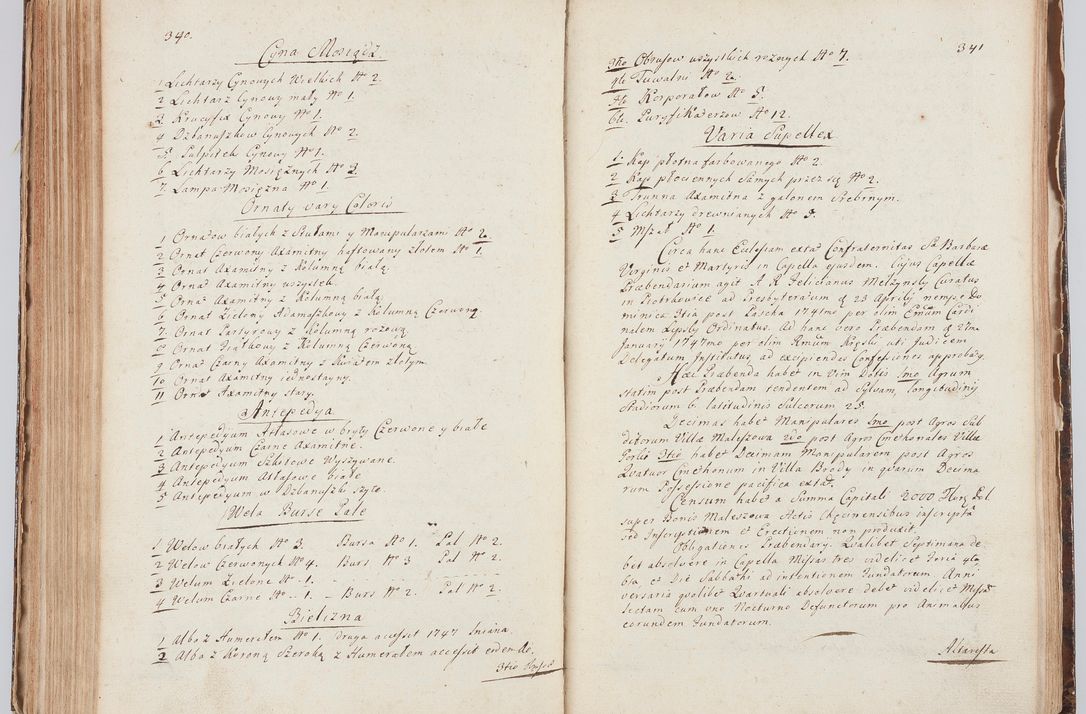 340.
Cyna Mosiądz.
1 Lichtarzy Cynowych Wielkich Nro 2.
2 Lichtarz Cynowy mały Nro 1.
3 Krucyfix Cynowy Nro 1.
4 Dzbanuszkow Cynowych Nro 2.
5. Pulpitek Cynowy Nro 1.
6 Lichtarzy Mosiężnych Nro 3.
7. Lampa Mosiężna Nro 1.
Ornaty vary Coloris
1 Ornatow białych z Stułami y Manipularzami Nro 2.
2 Ornat Czerwony Axamitny haftowany złotem Nro 1.
3 Ornat Axamitny z Kolumną białą.
4 Ornat Axamitny wszystek.
5 Ornat Axamitny z Kolumną białą.
6 Ornat Zielony Adamaszkowy z Kolumną Czerwoną.
7. Ornat Partyrowy z Kolumną rożową.
8 Ornat Kolumną Czerwoną
9 Ornat Czarny Axamitny z Kwiatem złotym.
10 Ornat Axamitny iednostayny.
11 Ornat Axamitny stary.
Antepedya
1 Antepedyum Atłasowe w bryty Czerwone y białe
2 Antepedyum Czarne Axamitne.
3 Antepedyum Wyszywane.
4 Antepedyum Atłasowe białe
5 Antepedyum w Dzbanuszki szyte.
Wela Burse Pale
1. Welow białych Nro 3. Bursa Nro 1. Pal Nro 2.
2 Welow Czerwonych Nro 4. Burs Nro 3 Pal Nro 2.
3 Welum Zielone Nro - 1.
4 Welum Czarne Nro - 1. - Burs Nro 2. Pal Nro 2.
Bielizna
1 Alba z Humerałem Nro 1. druga accessit 1747 lniana.
2 Alba z Koroną Szeroką z Humerałem accessit eidem Ao.
3tio
341
3tio Obrusow wszystkich rożnych Nro 7.
4to Tuwalni Nro 2.
5to Korporałow Nro 5.
6to. Puryfikaterzow Nro 12.
Varia Supellex
1. Kap płotna farbowanego Nro 2.
2 Kap płociennych Samych przez się Nro 2.
3 Trunna Axamitna z galonem Srebrnym.
4 Lichtarzy drewnianych Nro 3.
5 Mszał Nro 1.
Circa hanc Ecclesiam extat Confraternitas S. Barbaræ
Virginis et Martyris in Capella ejusdem. Cujus Capellæ
Præbendarium agit A. R. Felicianus Mełzynsky Curatus
in Piotrkowice ad Presbyteratum d. 23 Aprilij nempe Do
minica 3tia post Pascha 1741mo per olim Emum Cardi
nalem Lipsky Ordinatus. Ad hanc vero Præbendam d. 2da
January 1747mo per olim Rmum Rogski uti Judicem
Delegatum Institutus, ad excipiendas Confessiones approbatg.
Hæc Præbenda habet in Vim Dotis Imo Agrum
statim post Præbendam tendentem ad Sylvam, longitudinij
Stadiorum 6. latitudinis Sulcorum 25.
Decimas habet Manipulares Imo post Agros Sub
ditorum Villæ Maleszowa 2do post Agros Cmethonales Villæ
3tio habet Decimam Manipularem post Agros
Quatuor Cmethonum in Villa Brody in quarum Decima
rum Possessione pacifica extat.
Censum habet a Summa Capitali 2000 Flor. Pol
super Bonis Maleszowa Actis Chęcinensibus inscripta
sed Inscriptionem et Erectionem non produxit.
Obligationes Præbendary. Qualibet Septimana de
bet absolvere in Capella Missas tres videlicet Feria 4ta
6ta, et Die Sabbathi ad intentionem Fundatorum Anni
versaria quolibet Quartuali absolvere debet videlicet Missam
lectam cum uno Nocturno Defunctorum pro Animabus
eorundem Fundatorum.
Altarista